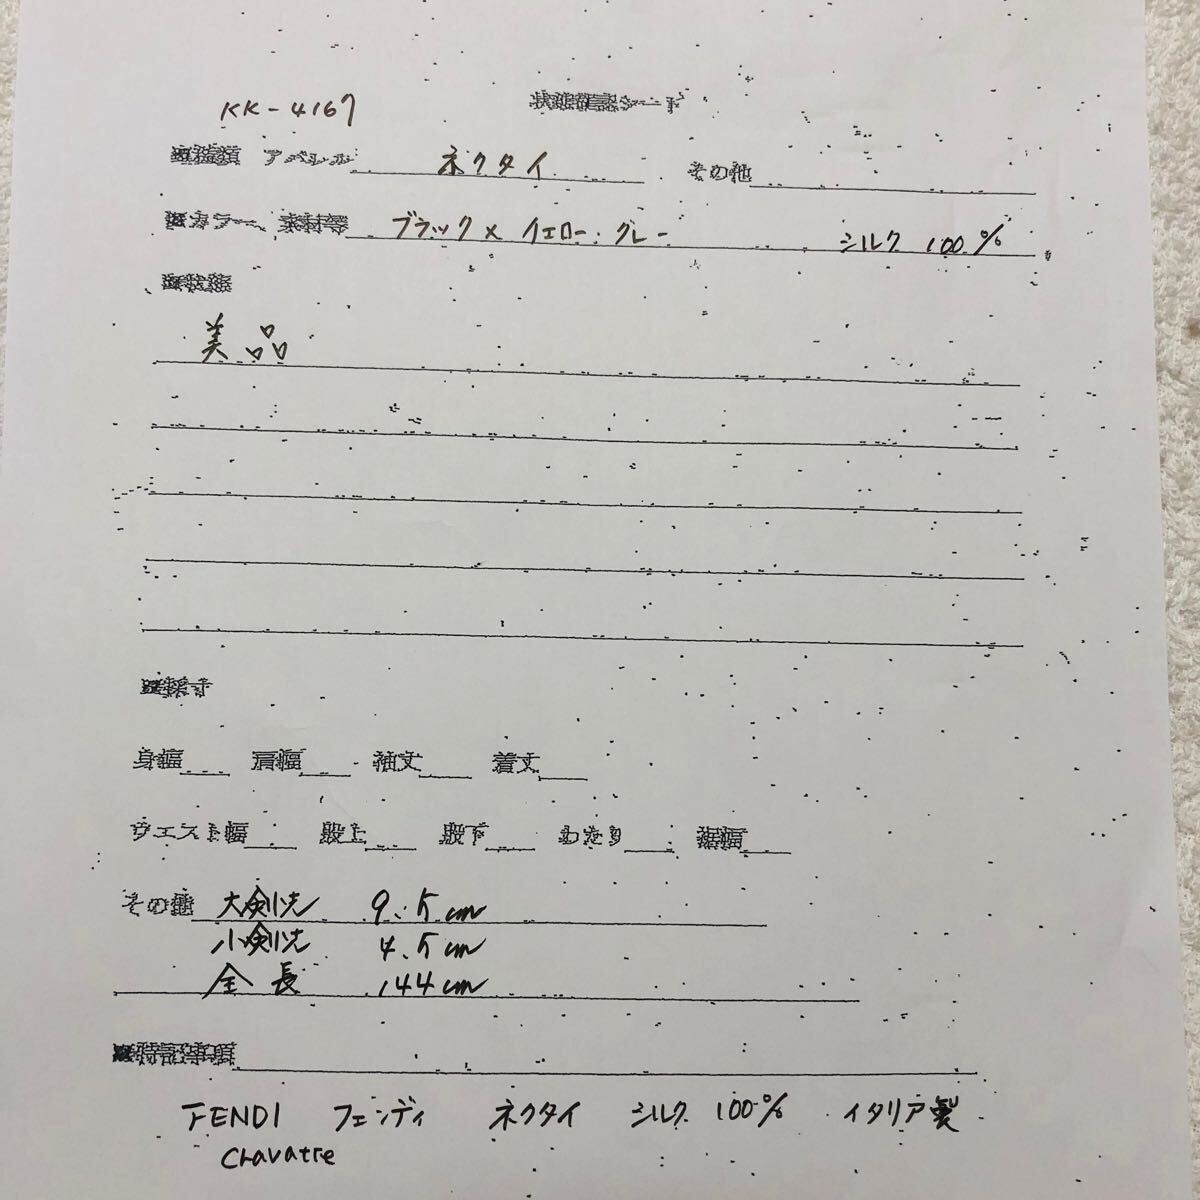 KK-4167
状態確認シート
■種類 アパレル ネクタイ その他
■カラー、素材等 ブラック×イエロー・グレー シルク 100%
■状態
美品
■採寸
身幅 肩幅 袖丈 着丈
ウエスト幅 股上 股下 わたり 裾幅
その他 大剣先 9.5cm
小剣先 4.5cm
全長 144cm
■特記事項
FENDI フェンディ ネクタイ シルク 100% イタリア製
Cravatte